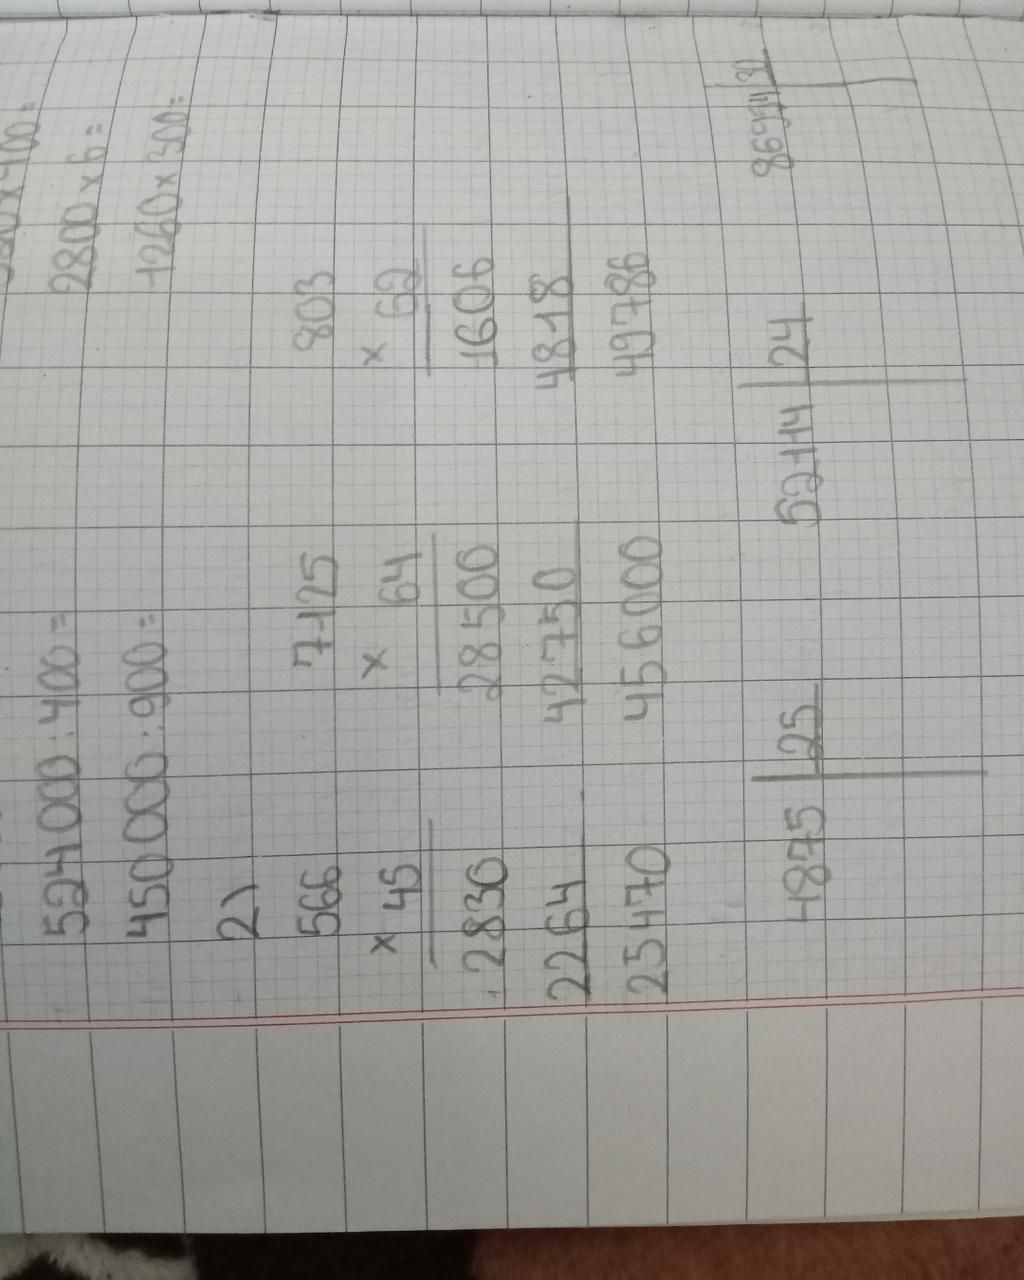 524000:400= 2800×6=
450000:900= 1260×300=
2)
566 7125 803
× 45 × 64 × 62
2830 28500 1606
2264 42750 4818
25470 456000 49786
4875 25 52114 24